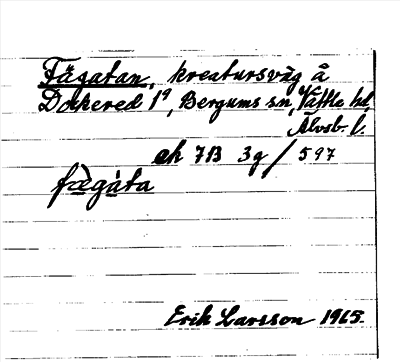 Fägatan, kreatursväg å
Dockered 1⁹, Bergums sn, Vättle hd,
Älvsb. l.
ek 7B 3g / 597
fä̀gáta
Erik Larsson 1965